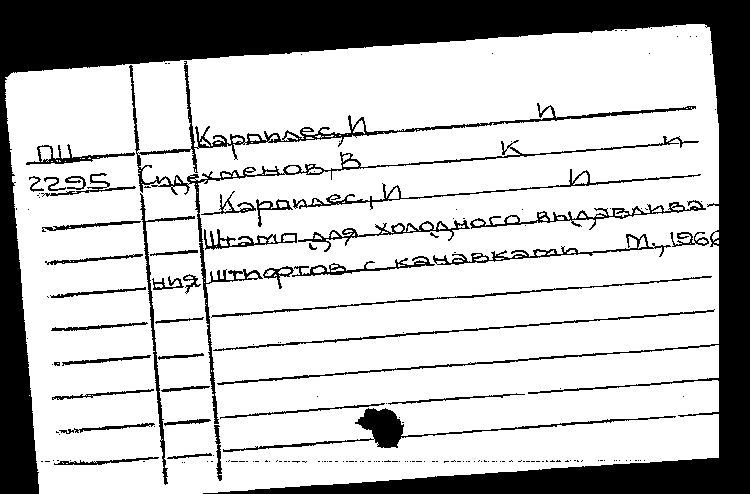 Карпилес, И И
ПЦ
2295 Сидехменов, В К П
Карпилес, И И
Штамп для холодного выдавлива-
ния штифтов с канавками. М., 1966